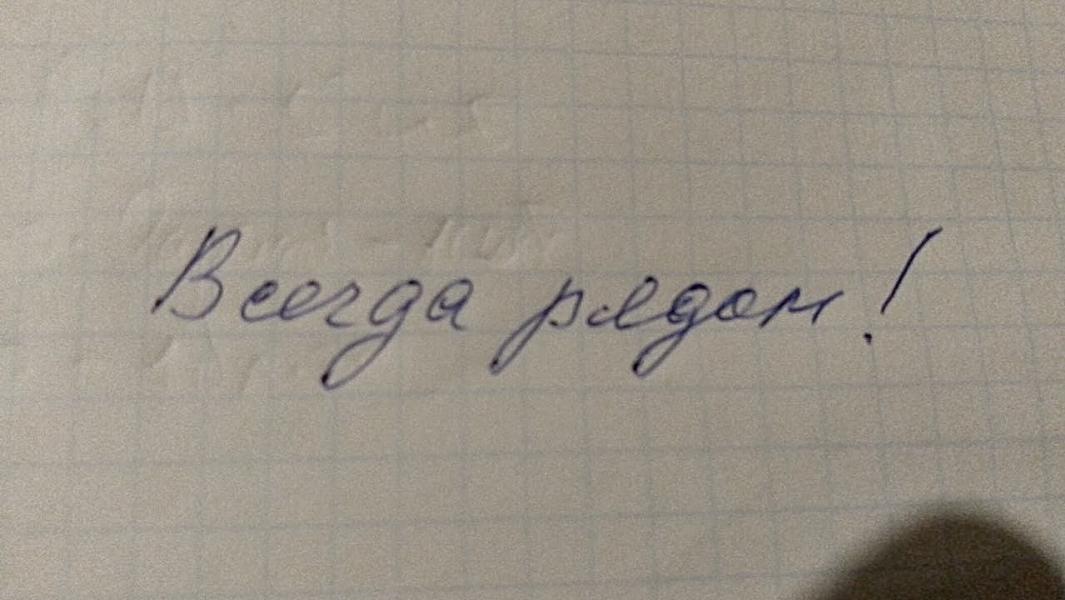 Всегда рядом!